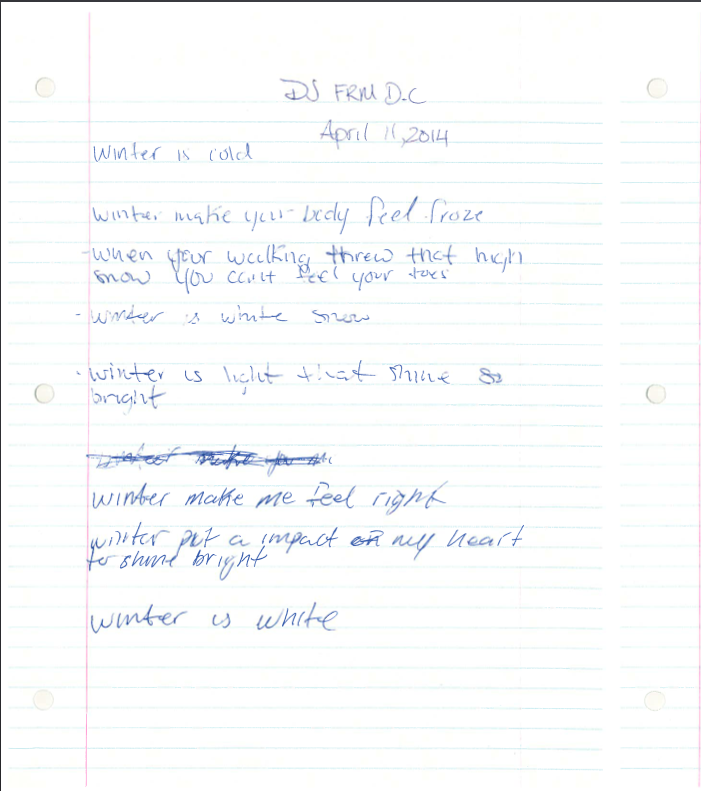 DJ FRM D.C
April 11, 2014
Winter is cold
winter make your body feel froze
- when your walking threw that high
snow you can't feel your toes
- winter is white snow
- winter is light that shine so
bright
winter make me feel right
winter put a impact on my heart
to shine bright
winter is white